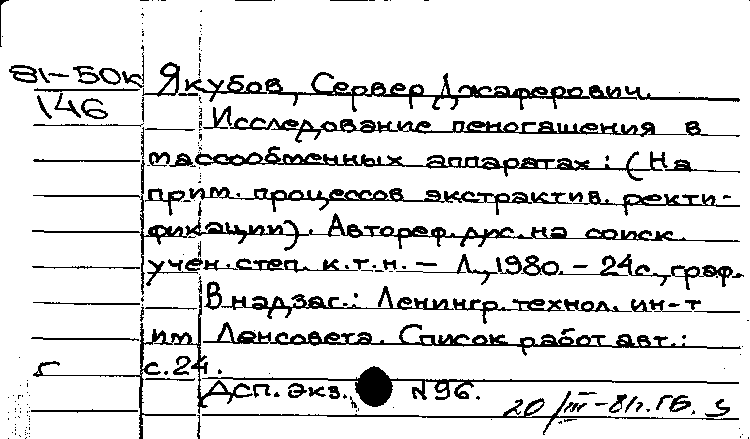 81-50к Якубов, Сервер Джаферович.
146
Исследование пеногашения в
массообменных аппаратах: (На
прим. процессов экстрактив. ректи-
фикации). Автореф. дис. на соиск.
учен. степ. к.т.н. – Л., 1980. – 24с., граф.
В надзаг.: Ленингр. технол. ин-т
им Ленсовета. Список работ авт.:
с. 24.
Дсп. экз. N 96.
20/III-81г. ГБ.